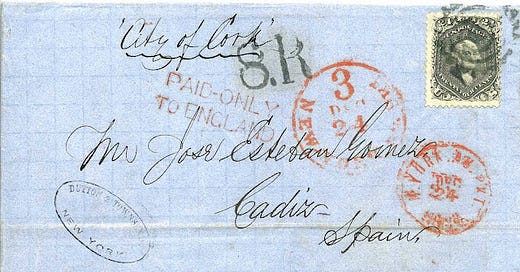 "City of Cork"
S.R
PAID-ONLY
TO ENGLAND
3
DEC
24
NEW
24
24
N. YORK AM. PKT
DEC
24
Mr Jose Esteban Gomez,
Cadiz
Spain,
DUTTON &
NEW YORK